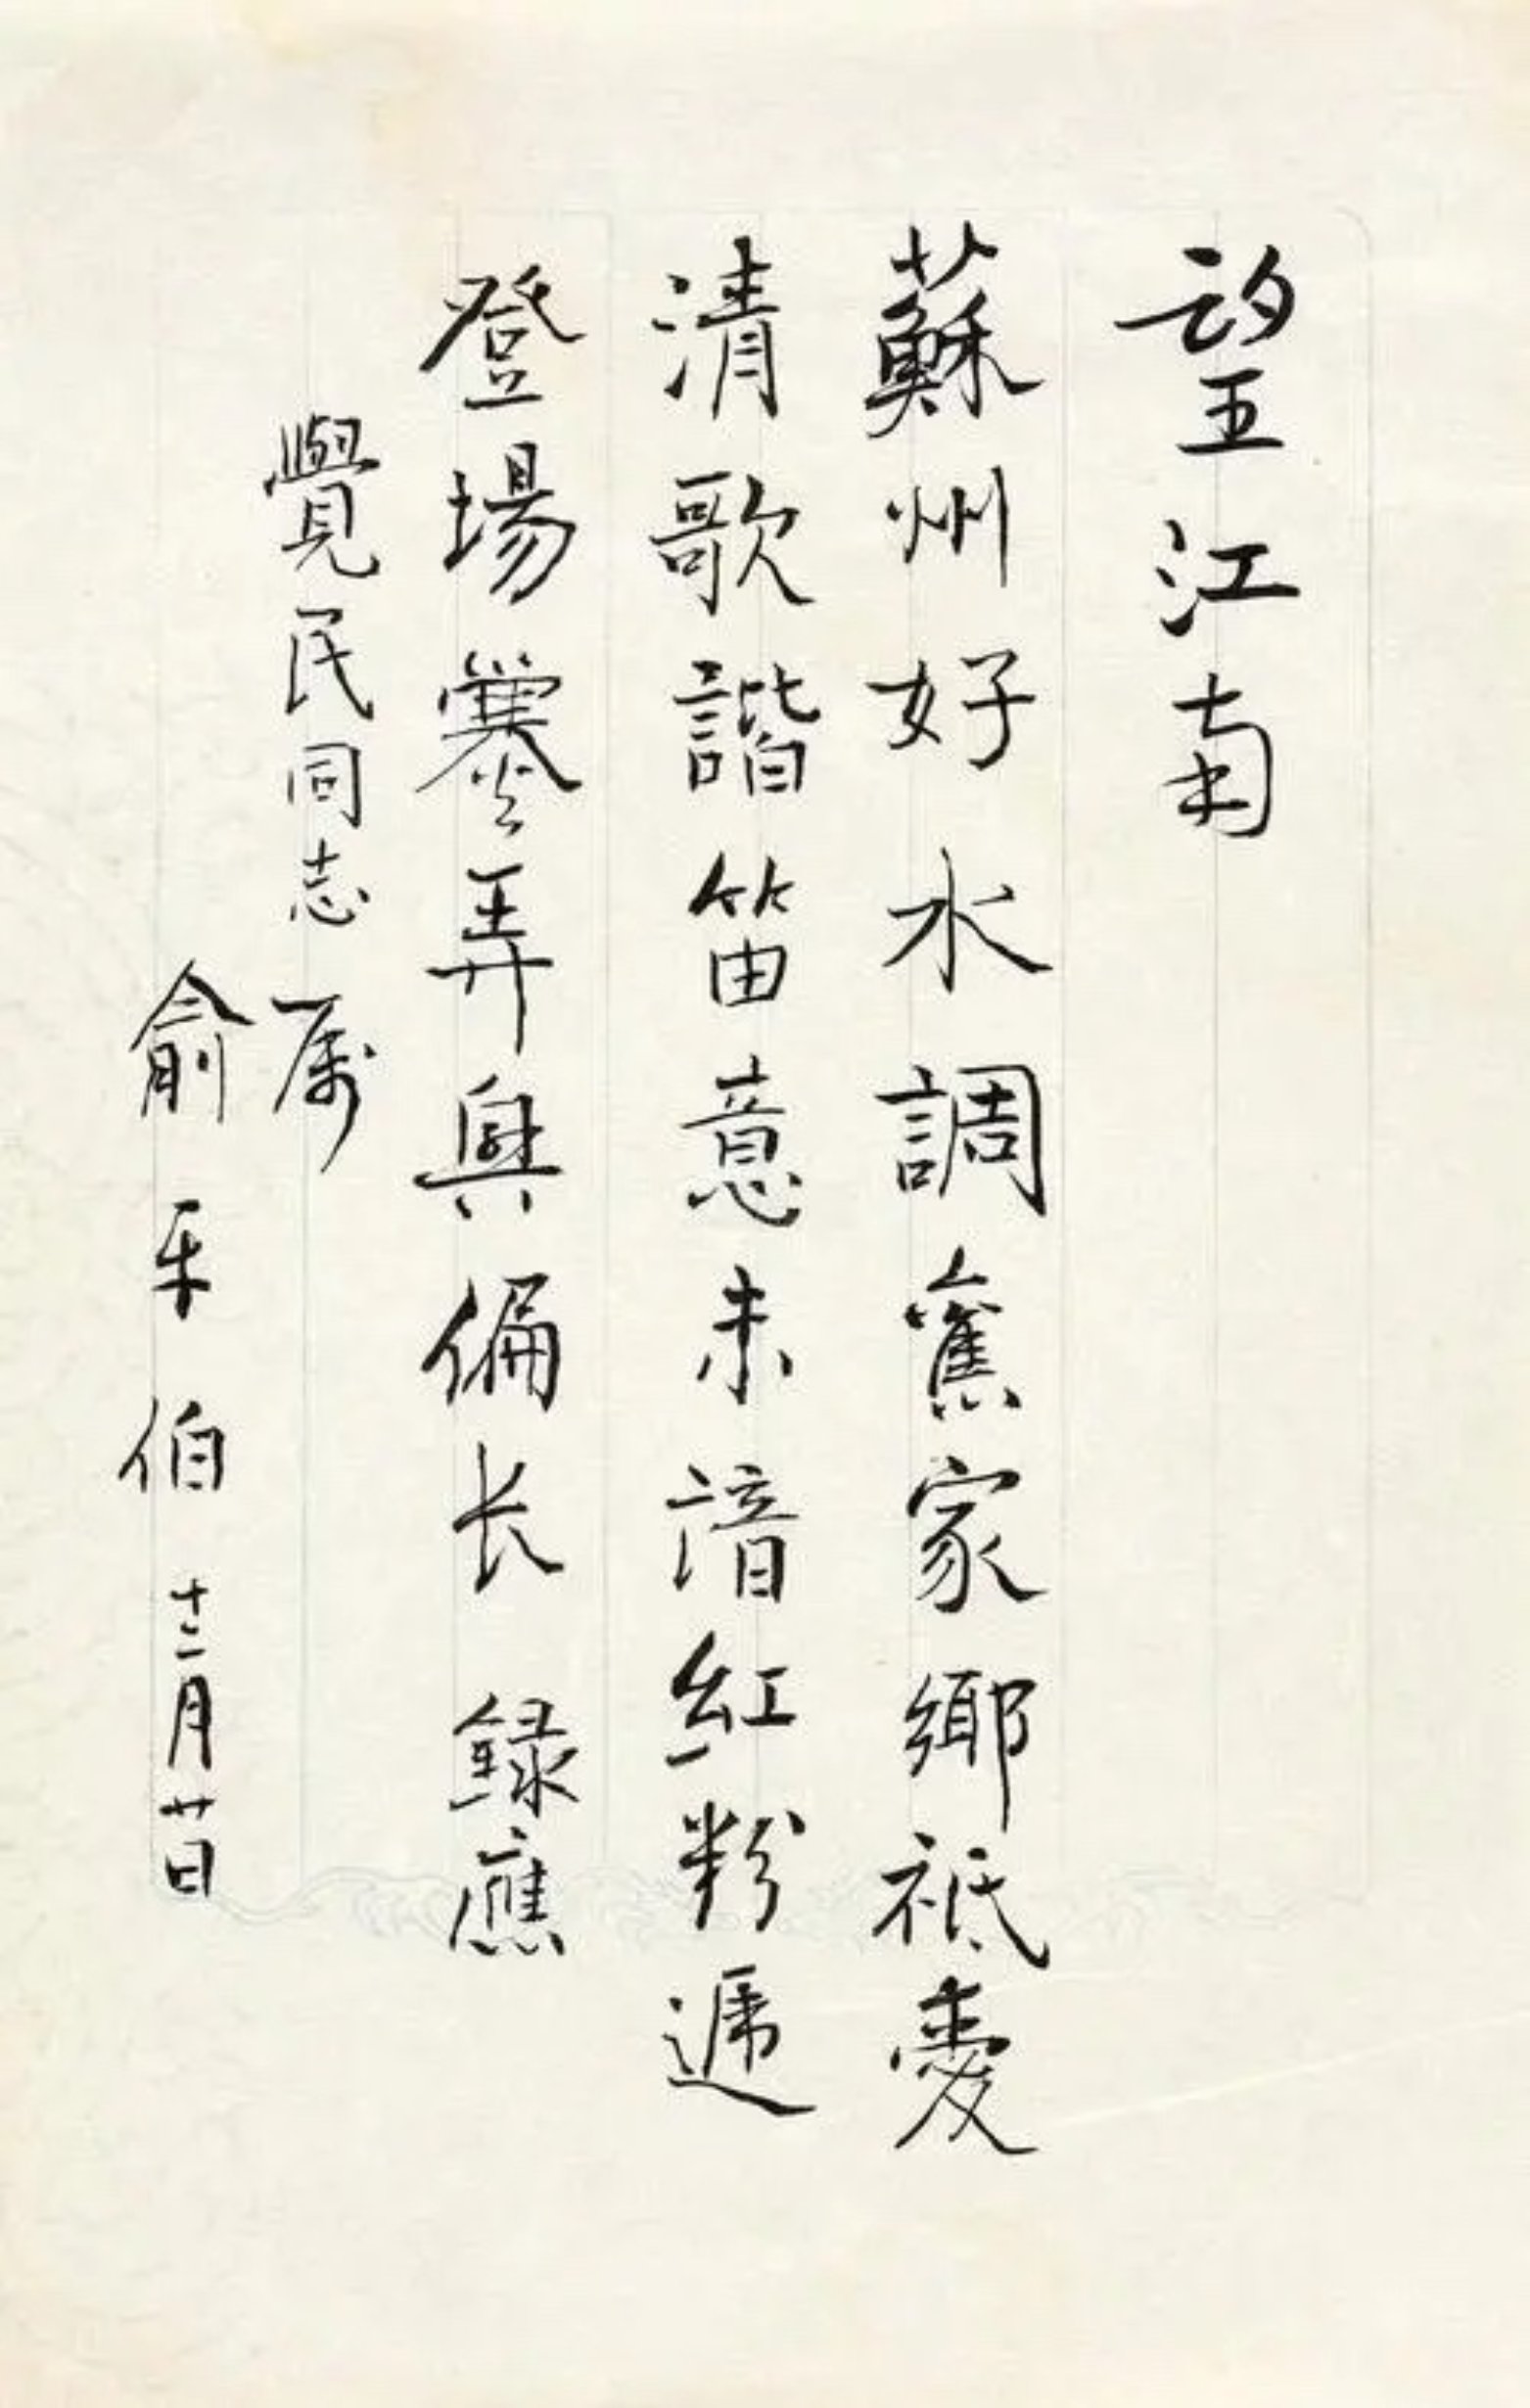 望江南
蘇州好水調舊家鄉祇愛
清歌諧笛意未諳紅粉遞
登場爨弄興偏长 録應
覺民同志 属
俞平伯 十二月廿日